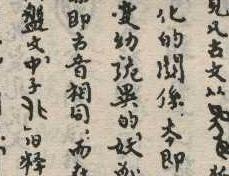 見凡古文从
化的關係.本即
变幻詭異的"妖
即古音相同.而
盤文中"子北"旧释